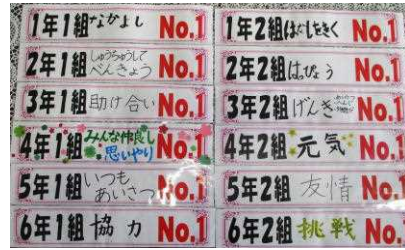 1年1組なかよし No.1
2年1組しゅうちゅうして べんきょう No.1
3年1組助け合い No.1
4年1組みんな仲良し 思いやり No.1
5年1組いつも あいさつ No.1
6年1組協力 No.1
1年2組はなしをきく No.1
2年2組はっぴょう No.1
3年2組げんき No.1
4年2組元気 No.1
5年2組友情 No.1
6年2組挑戦 No.1